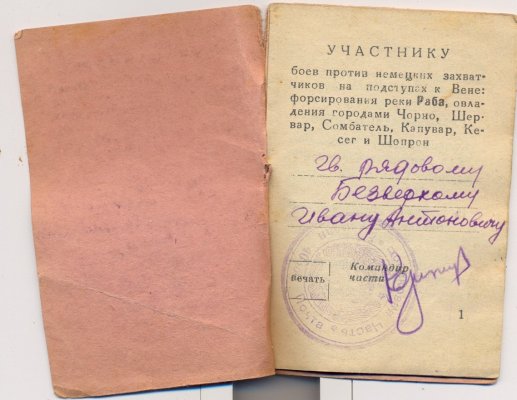 УЧАСТНИКУ
боев против немецких захват-
чиков на подступах к Вене:
форсирования реки Раба, овла-
дения городами Чорно, Шер-
вар, Сомбатель, Капувар, Ке-
сег и Шопрон
гв. рядовому
Безверхому
Ивану Антоновичу
Командир
части
печать
1